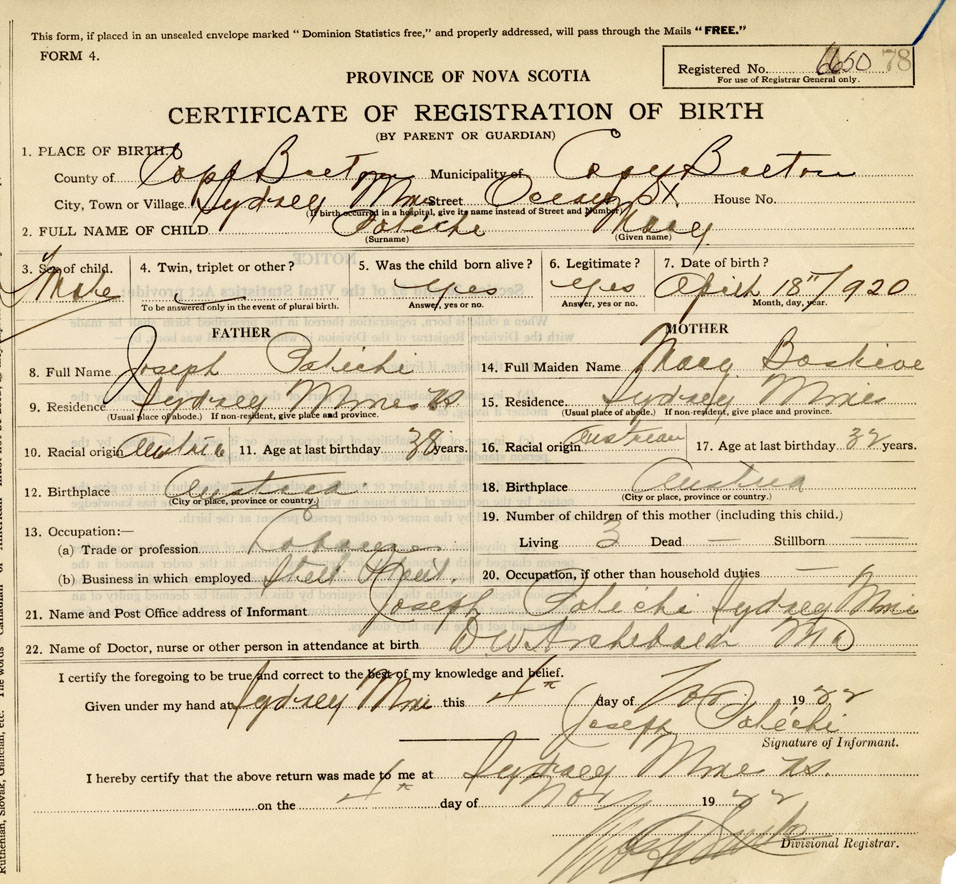 This form, if placed in an unsealed envelope marked “ Dominion Statistics free,” and properly addressed, will pass through the Mails “ FREE.”
FORM 4.
Registered No. 6650 78
For use of Registrar General only.
PROVINCE OF NOVA SCOTIA
CERTIFICATE OF REGISTRATION OF BIRTH
(BY PARENT OR GUARDIAN)
1. PLACE OF BIRTH.
County of Cape Breton Municipality of Cape Breton
City, Town or Village Sydney Mines Street Ocean St House No.
(If birth occurred in a hospital, give its name instead of Street and Number)
2. FULL NAME OF CHILD Patichi Mary
(Surname) (Given name)
NOTICE
3. Sex of child. 4. Twin, triplet or other? 5. Was the child born alive? 6. Legitimate? 7. Date of birth?
Male Yes Yes April 18th/1920
To be answered only in the event of plural birth. Answer, yes or no. Answer, yes or no. Month, day, year.
FATHER MOTHER
8. Full Name Joseph Patichi 14. Full Maiden Name Mary
9. Residence Sydney Mines NS 15. Residence Sydney Mines
(Usual place of abode.) If non-resident, give place and province. (Usual place of abode.) If non-resident, give place and province.
10. Racial origin Austria 11. Age at last birthday 38 years. 16. Racial origin Austrian 17. Age at last birthday 32 years.
12. Birthplace Austria 18. Birthplace Austria
(City or place, province or country.) (City or place, province or country.)
13. Occupation:— 19. Number of children of this mother (including this child.)
(a) Trade or profession Laborer Living 3 Dead — Stillborn —
(b) Business in which employed Steel Plant. 20. Occupation, if other than household duties —
21. Name and Post Office address of Informant Joseph Patichi Sydney Mines
22. Name of Doctor, nurse or other person in attendance at birth D W Archibald MD
I certify the foregoing to be true and correct to the best of my knowledge and belief.
Given under my hand at Sydney Mines this 4th day of Nov 1922
Joseph Patichi
Signature of Informant.
I hereby certify that the above return was made to me at Sydney Mines NS.
on the 4th day of Nov 1922
Divisional Registrar.
Ruthenian, Slovak, Galician, etc. The words Canadian or American must not be